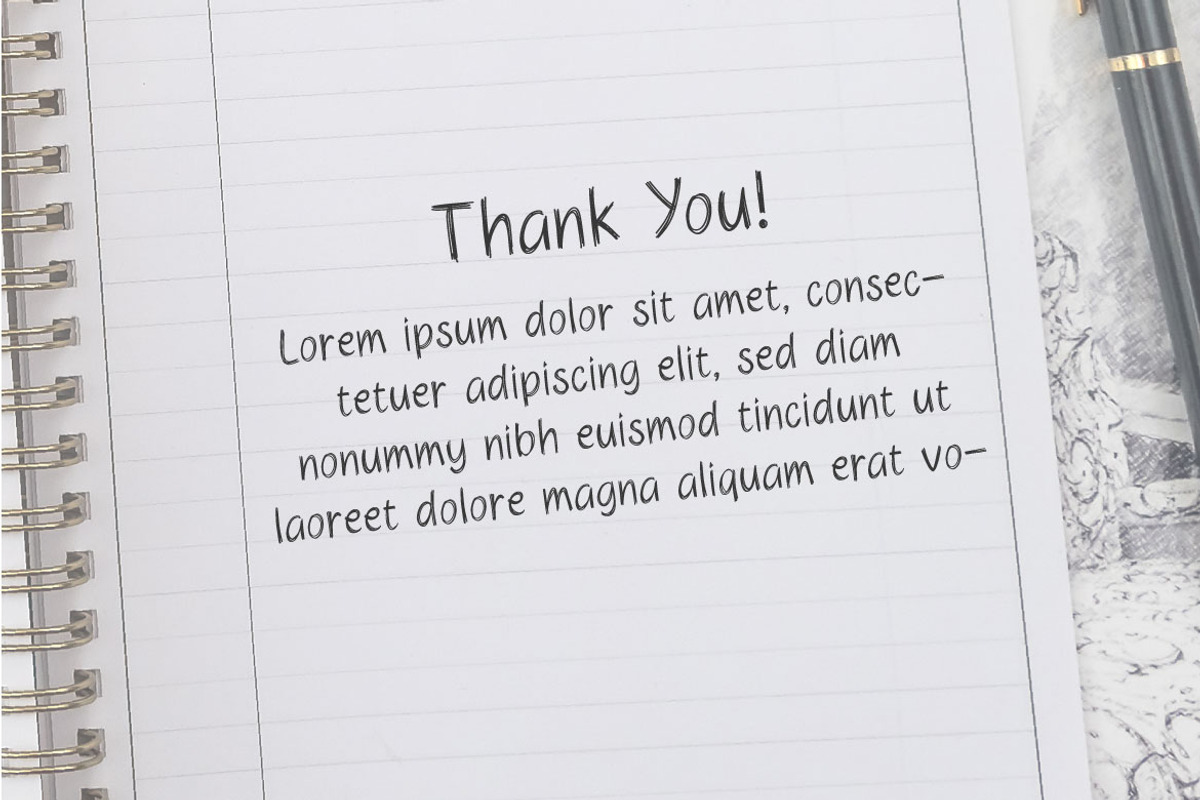 Thank You!
Lorem ipsum dolor sit amet, consec-
tetuer adipiscing elit, sed diam
nonummy nibh euismod tincidunt ut
laoreet dolore magna aliquam erat vo-